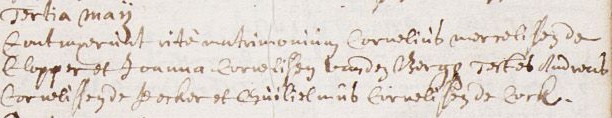 Tertia maÿ
Contraxerunt rite matrimonium Cornelius mercelissen de
Clopper et Joanna Cornelissen vanden Bergg Testes Andreas
Cornelissen de Hecker et Guilielmus Cornelissen de Cock.